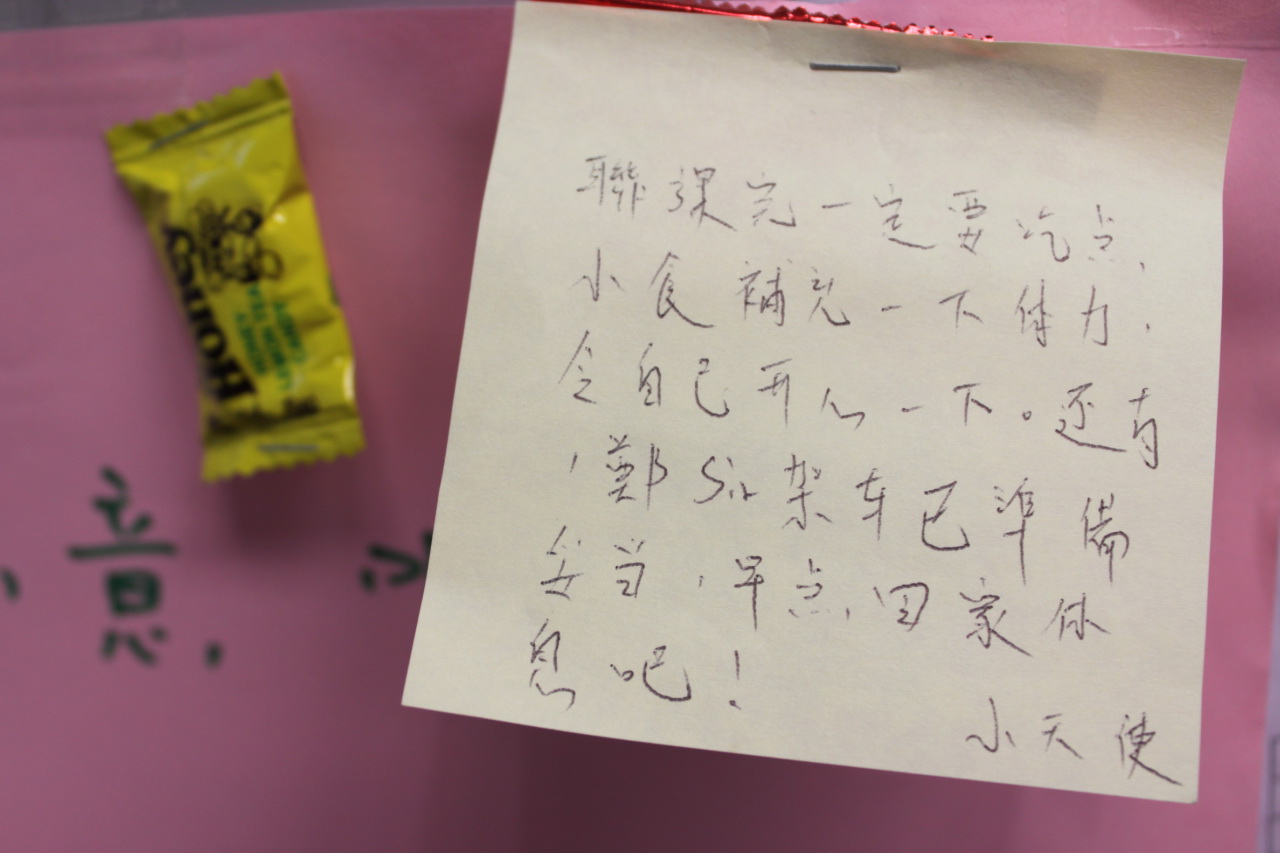 聯課完一定要吃点
小食補充一下体力,
令自己开心一下。还有
,鄭Sir架车已準備
妥当,早点回家休
息吧!
小天使
Honey
意